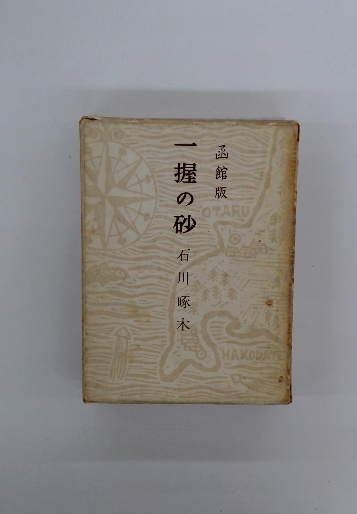 函館版
一握の砂
石川啄木
OTARU
HAKODA